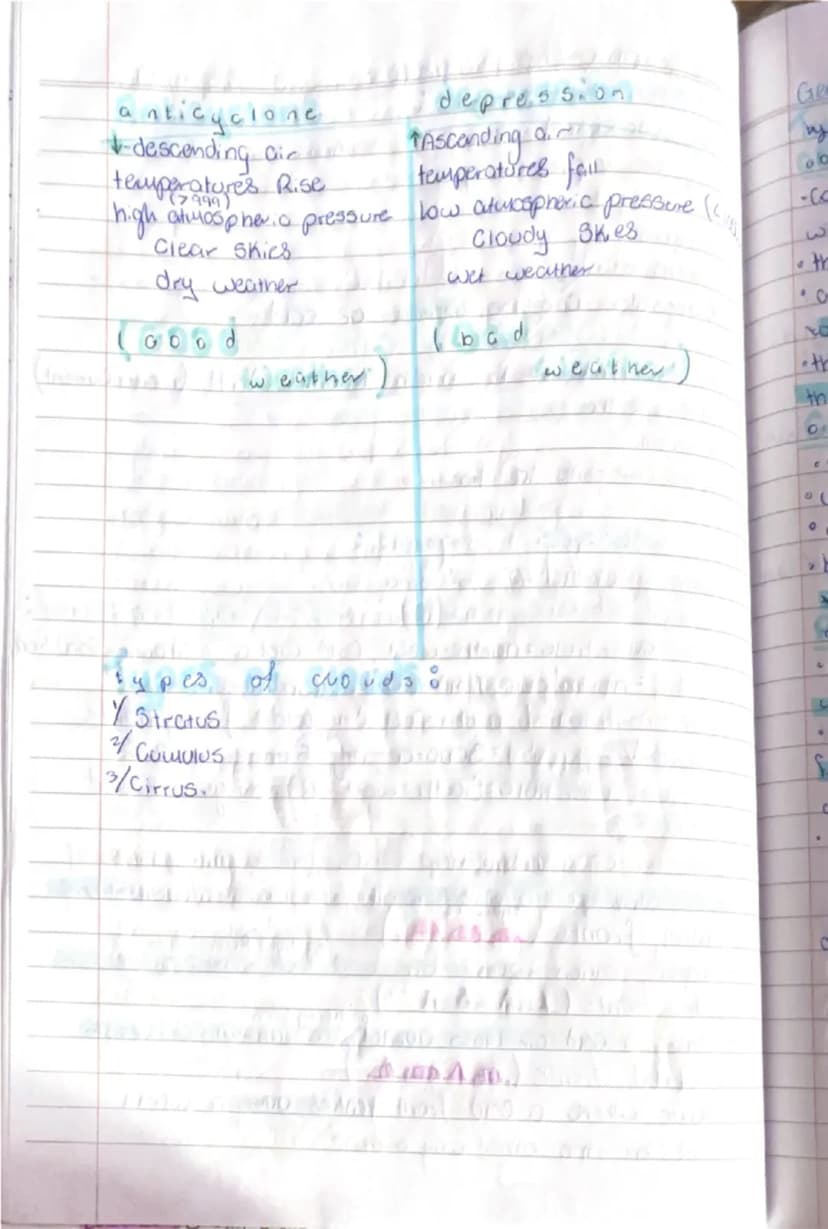 anticyclone
↓-descending air
temperatures Rise
(>999)
high atmospheric pressure
Clear skies
dry weather
(Good
weather)
depression
↑Ascending air
temperatures fall
low atmospheric pressure (
Cloudy Skies
wet weather
(bad
weather)
types of clouds:
1/ Stratus
2/ Cumulus
3/Cirrus.